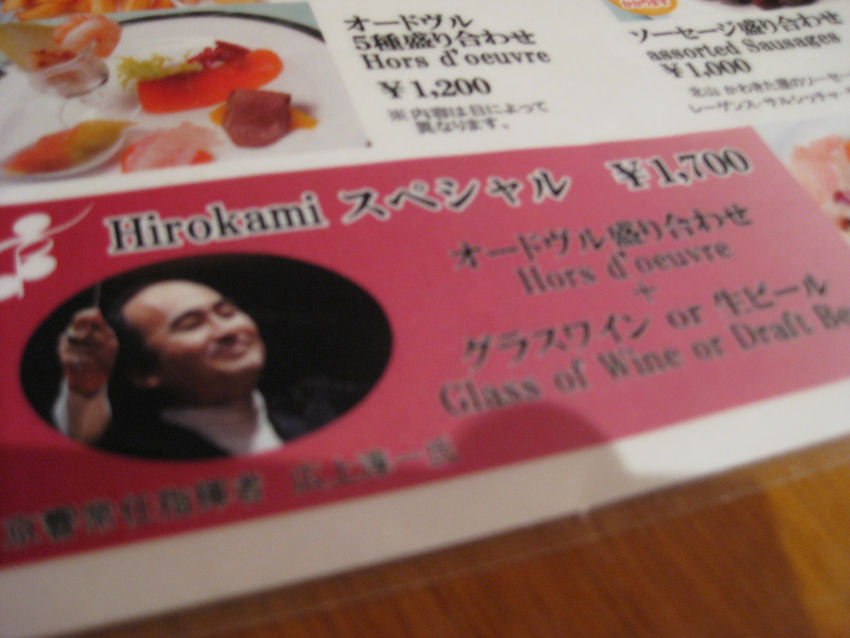 オードヴル
5種盛り合わせ
Hors d'oeuvre
￥1,200
※内容は日によって
異なります。
ソーセージ盛り合わせ
assorted Sausages
￥1,000
北山 かわきた屋のソーセー
レーゲンス・サルシッチャ・
Hirokami スペシャル ￥1,700
オードヴル盛り合わせ
Hors d'oeuvre
+
グラスワイン or 生ビール
Glass of Wine or Draft Be
京響常任指揮者 広上淳一氏